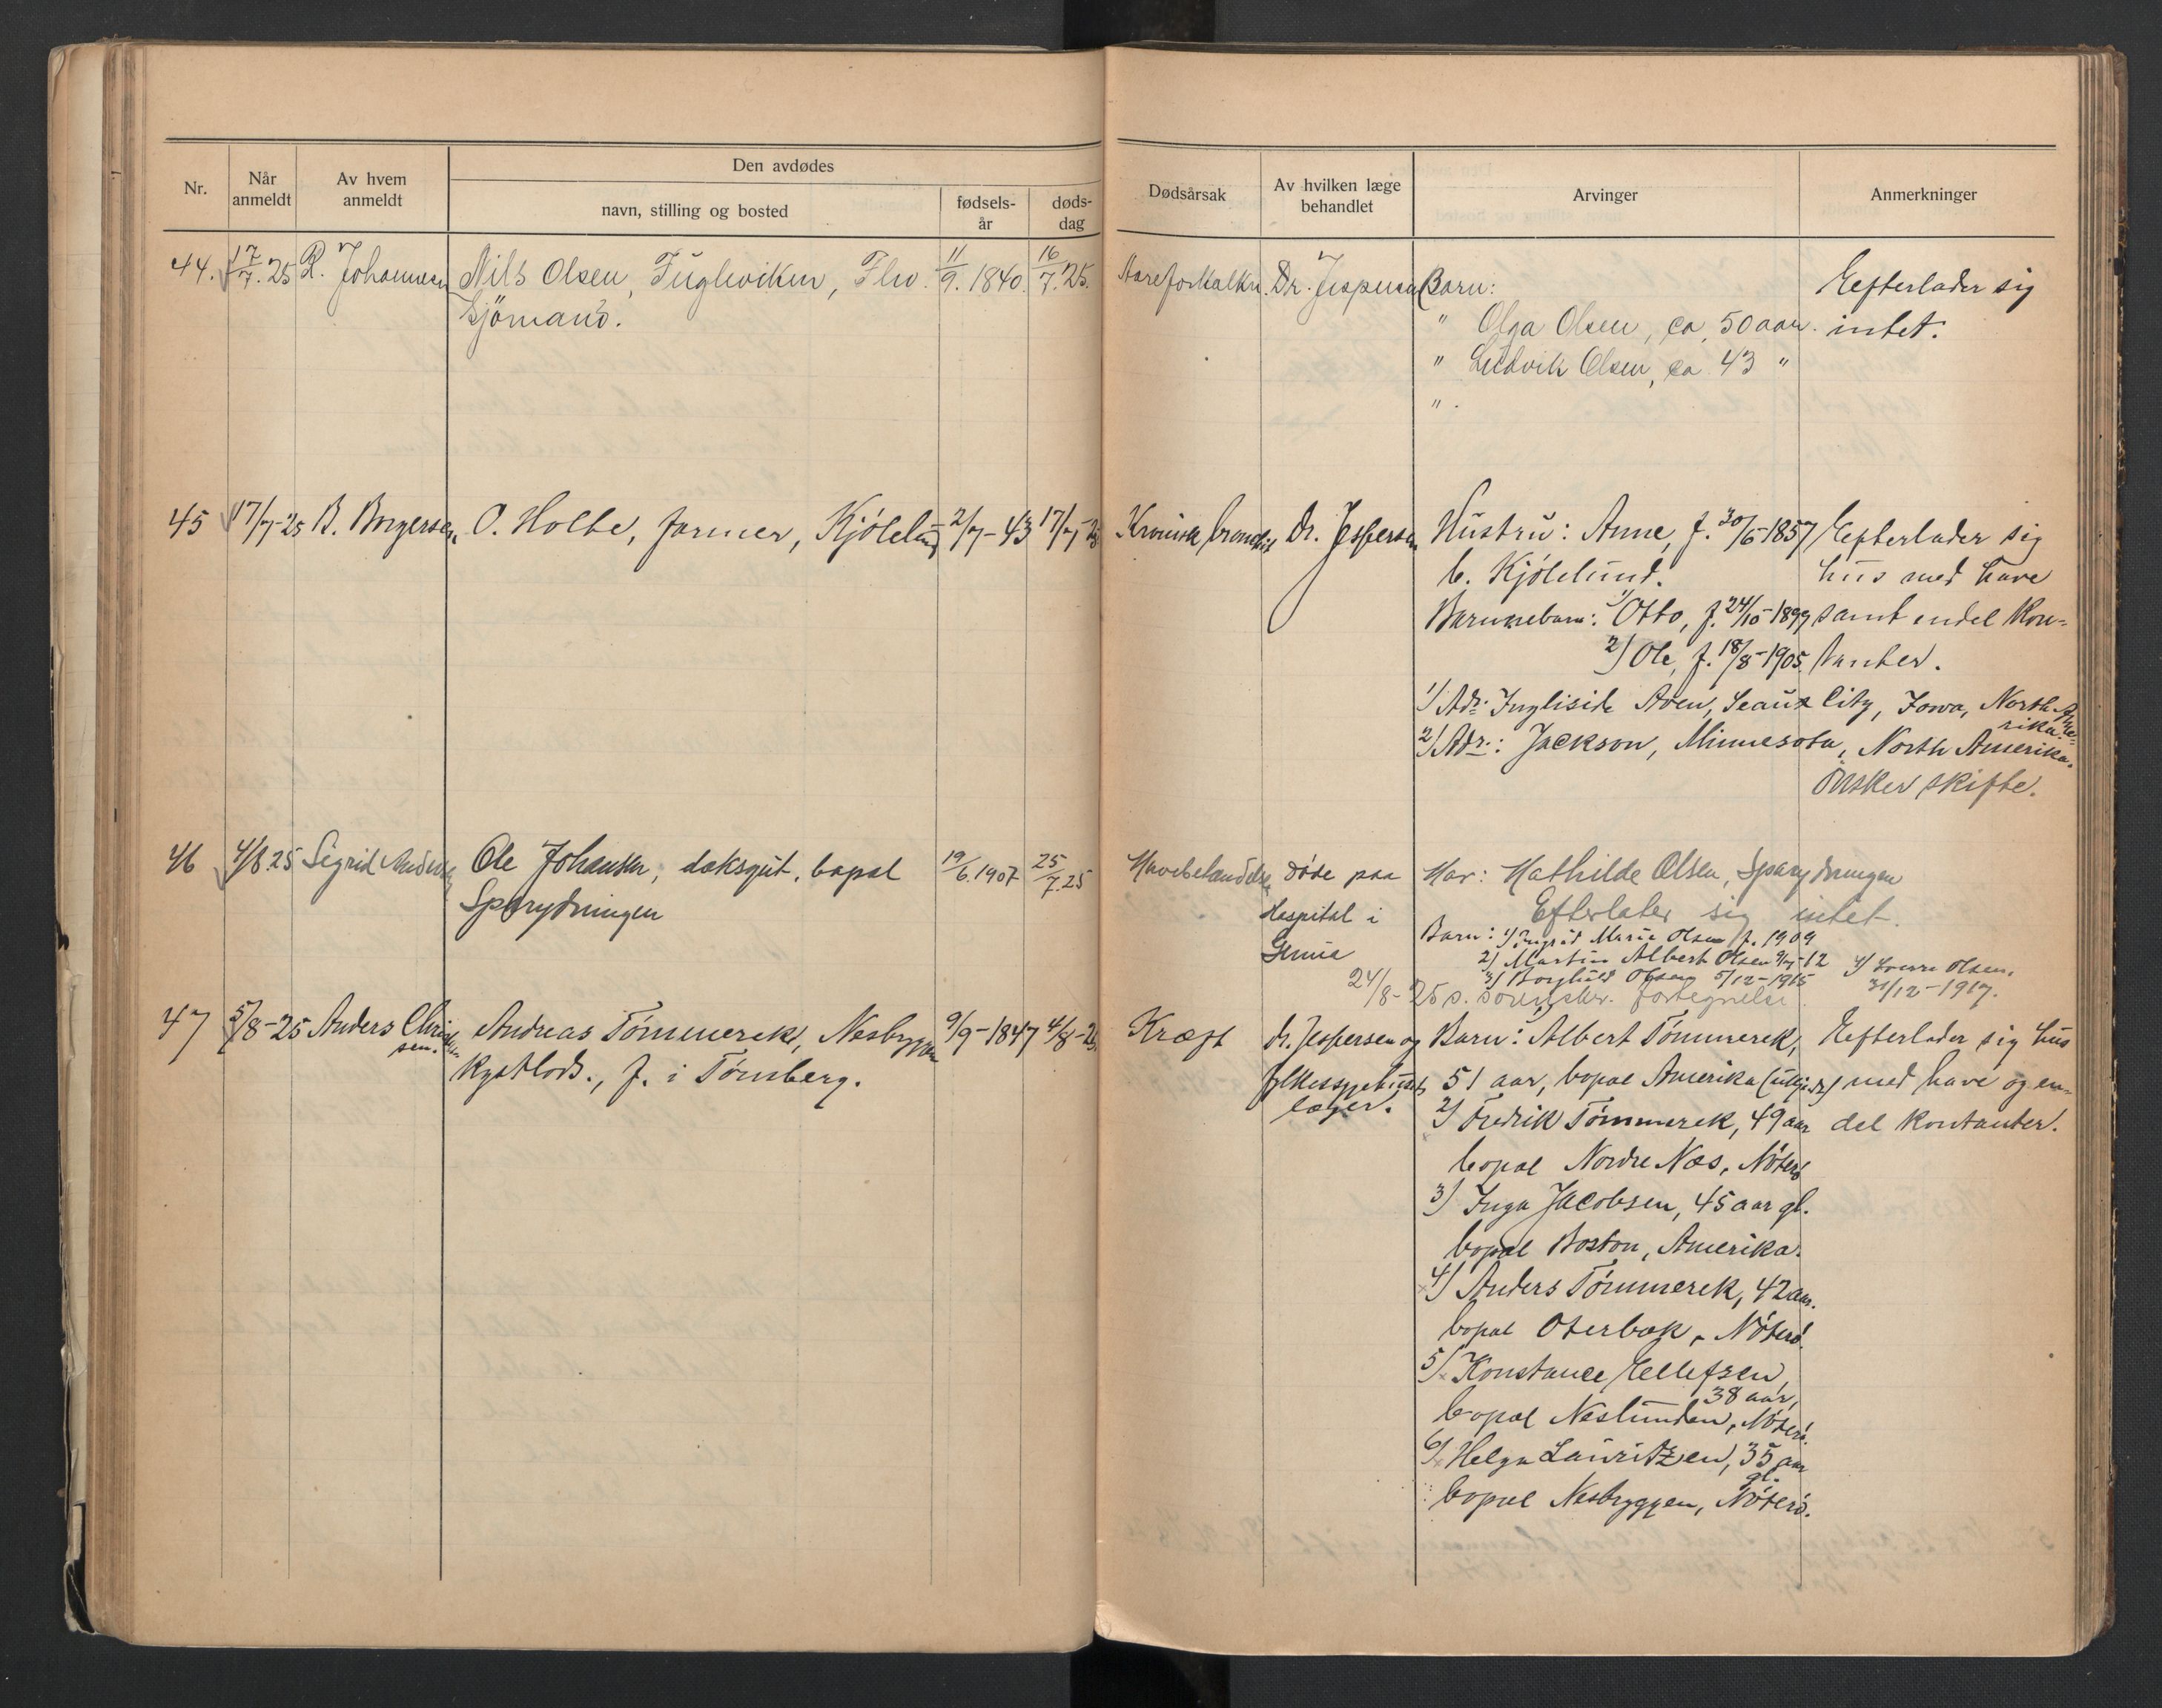 Nr.
Når anmeldt
Av hvem anmeldt
Den avdødes
navn, stilling og bosted
fødsels-år
døds-dag
Dødsårsak
Av hvilken læge behandlet
Arvinger
Anmerkninger
44. 17/7.25 R. Johannesen Nils Olsen, Fugleviken, Flu. 11/9.1840. 16/7.25. Aareforkalkn. Dr. Jespersen Barn: Efterlader sig
Sjömand. " Olga Olsen, ca. 50 aar. intet.
" Ludvik Olsen, ca 43 "
" .
45 17/7-25 B. Borgersen, O. Holte, farmer, Kjölelund 2/7-43 17/7-25 Kronisk bronchit Dr. Jespersen Hustru: Anne, f. 30/6-1857 Efterlader sig
b. Kjölelund. hus med have
Barnnebarn: 1) Otto, f. 24/10-1899 samt endel kon-
2) Ole, f. 18/8-1905. tanter.
1) Adr: Ingliside Aven, Seaux City, Iowa, North Ame-
rika.
2) Adr.: Jackson, Minnesota, North Amerika.
Önsker skifte.
46 4/8.25 Sigrid Andersen Ole Johansen, daksgut, bopæl 19/6.1907 25/7.25 döde paa Mor: Mathilde Olsen, Sparrydningen
Sparydningen Hospital i Efterlater sig intet.
Genua Barn: 1) Ingrid Marie Olsen f. 1909
2) Martin Albert Olsen 9/7-12 4) Sverre Olsen,
3) Borghild Olsen 5/12-1915 31/12-1917.
24/8-25 s. sorenskr. fortegnelse
47 5/8-25 Anders Christen Andreas Tömmerek, Nesbryggen 9/9-1847 4/8-25 Kræft dr. Jespersen og Barn: Albert Tömmerek, Efterlader sig hus
sen. Kystlods., f. i Tönsberg. 51 aar, bopæl Amerika med have og en-
læger. 2) Fredrik Tömmerek, 49 aar del kontanter.
bopæl Nordre Næs, Nöterö
3) Inga Jacobsen, 45 aar gl.
bopæl Boston, Amerika.
4) Anders Tömmerek, 42 aar.
bopæl Oterbæk, Nöterö.
5) Konstance Ellefsen,
38 aar,
bopæl Neslunden, Nöterö.
6) Helga Lauritzen, 35 aar
gl.
bopæl Nesbryggen, Nöterö.